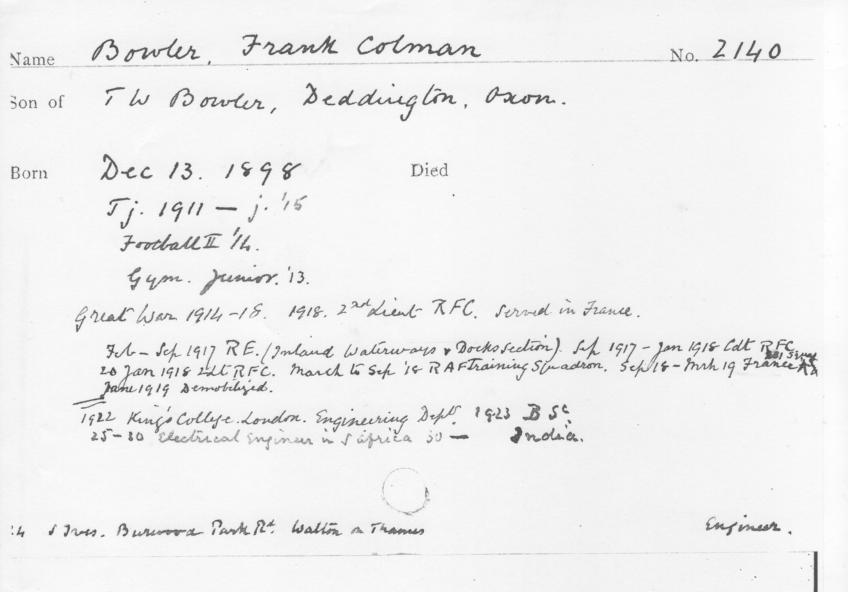 Name Bowler, Frank Colman No. 2140
Son of T W Bowler, Deddington, Oxon.
Born Dec 13. 1898 Died
Tj. 1911 — j. '15
Football II '14.
Gym. Junior. '13.
Great War 1914-18. 1918. 2nd Lieut RFC. Served in France.
Feb – Sep 1917 R.E. (Inland Waterways & Docks Section). Sep 1917 – Jan 1918 Cdt RFC
20 Jan 1918 2Lt RFC. March to Sep '18 RAF Training Squadron. Sep 18 – Mrh 19 France
June 1919 Demobilized.
1922 King's College. London. Engineering Dept. 1923 B Sc.
25-30 Electrical Engineer in S Africa 30 — India.
S Ives. Burwood Park Rd. Walton on Thames Engineer.